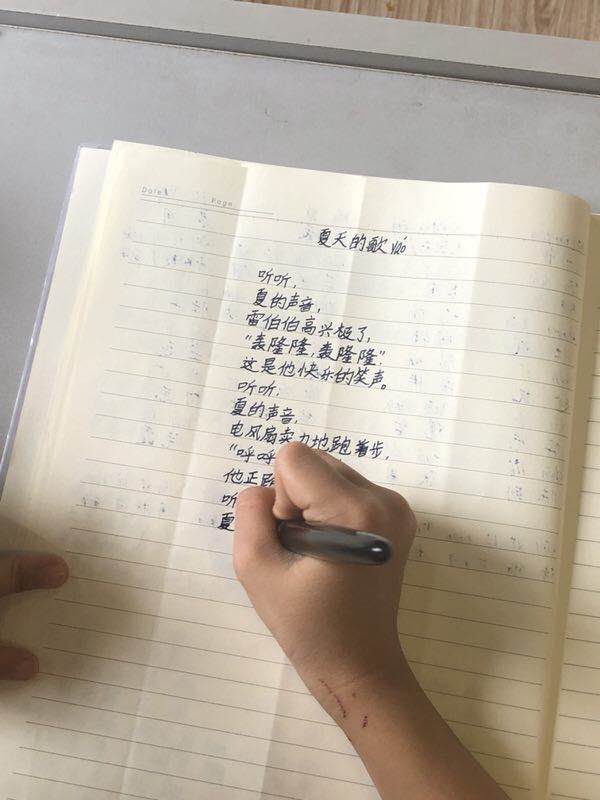 Date. Page.
夏天的歌yáo
听听，
夏的声音，
雷伯伯高兴极了，
“轰隆隆，轰隆隆”
这是他快乐的笑声。
听听，
夏的声音，
电风扇卖力地跑着步，
“呼呼
他正
听
夏